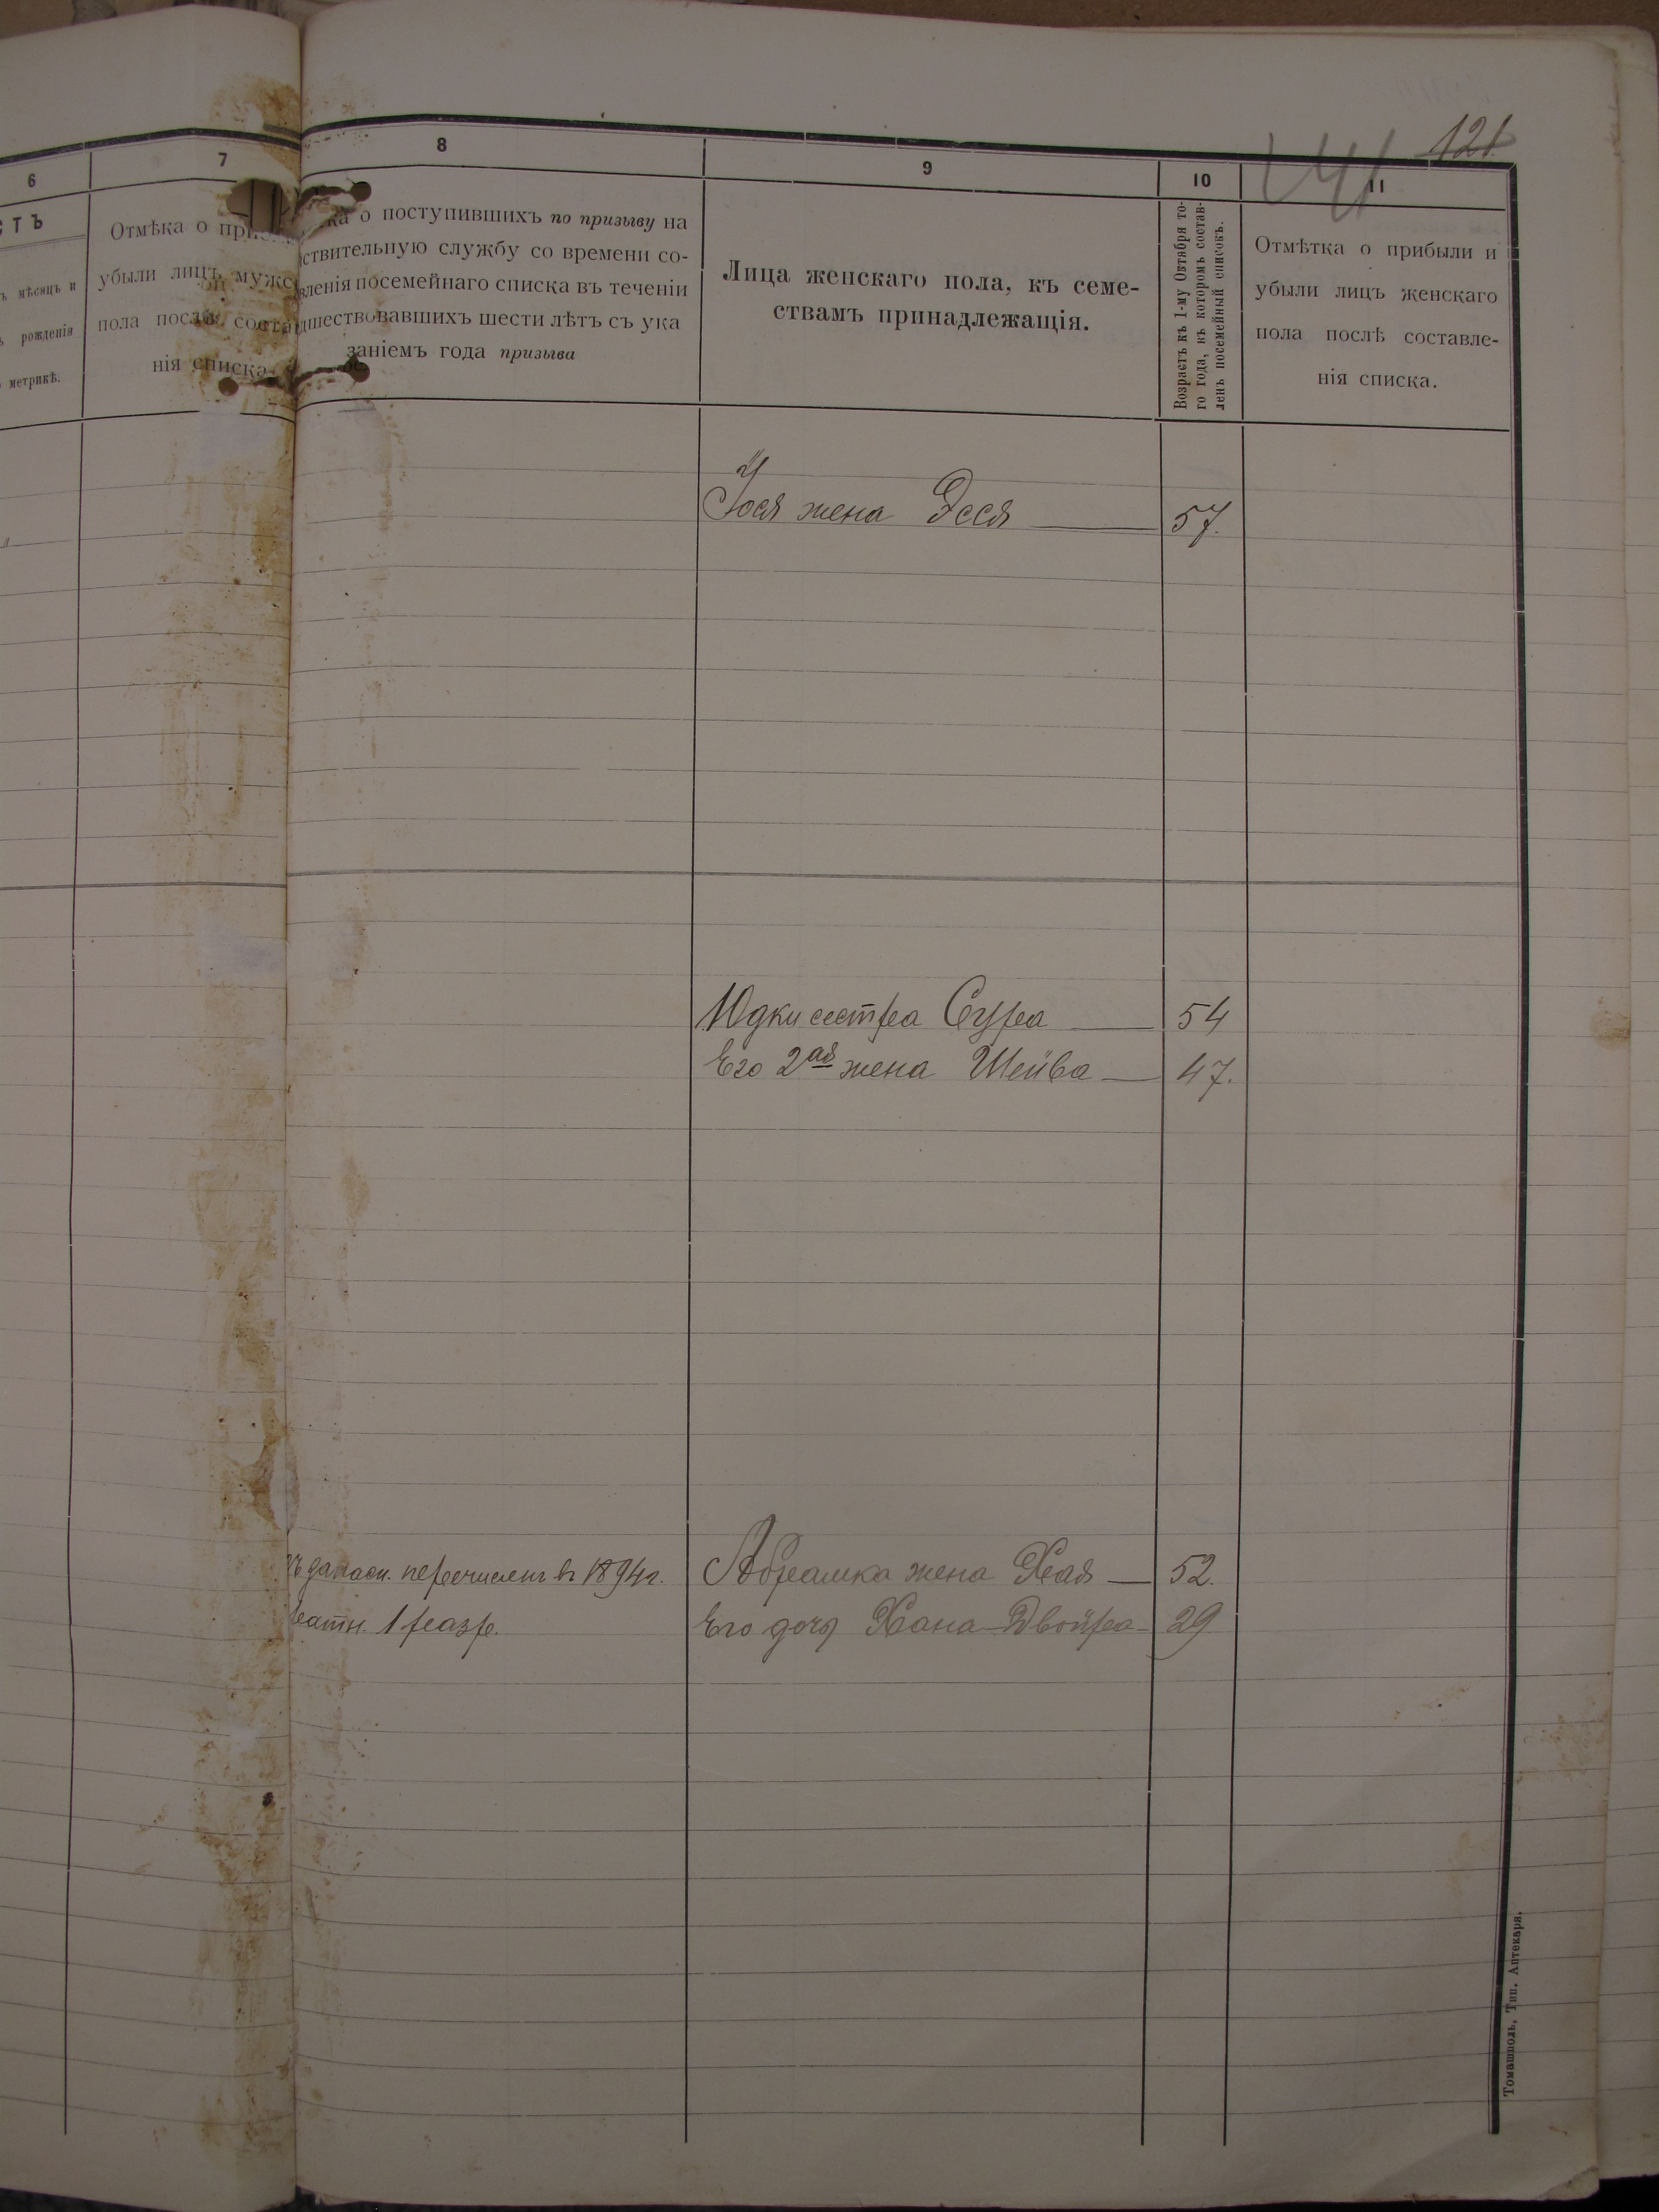 121
141
6
7
8
9
10
11
СТЪ
мѣсяцъ и
рожденія
метрикѣ.
Отмѣка о
убыли лицъ мужс
пола послѣ
нія списка
о поступившихъ по призыву на
ствительную службу со времени со-
вленія посемейнаго списка въ теченіи
дшествовавшихъ шести лѣтъ съ ука
заніемъ года призыва
Лица женскаго пола, къ семе-
ствамъ принадлежащія.
Возрастъ къ 1-му Октября то-
го года, къ которомъ состав-
ленъ посемейный списокъ.
Отмѣтка о прибыли и
убыли лицъ женскаго
пола послѣ составле-
нія списка.
жена Эсся 57.
Юдки сестра Сура 54
Его 2ая жена Шейва 47.
перечисленъ въ 1894 г. Абрашка жена Хая 52.
ратн. 1 разр. Его дочь Хана-Двойра 29
Томашполь, Тип. Аптекаря.